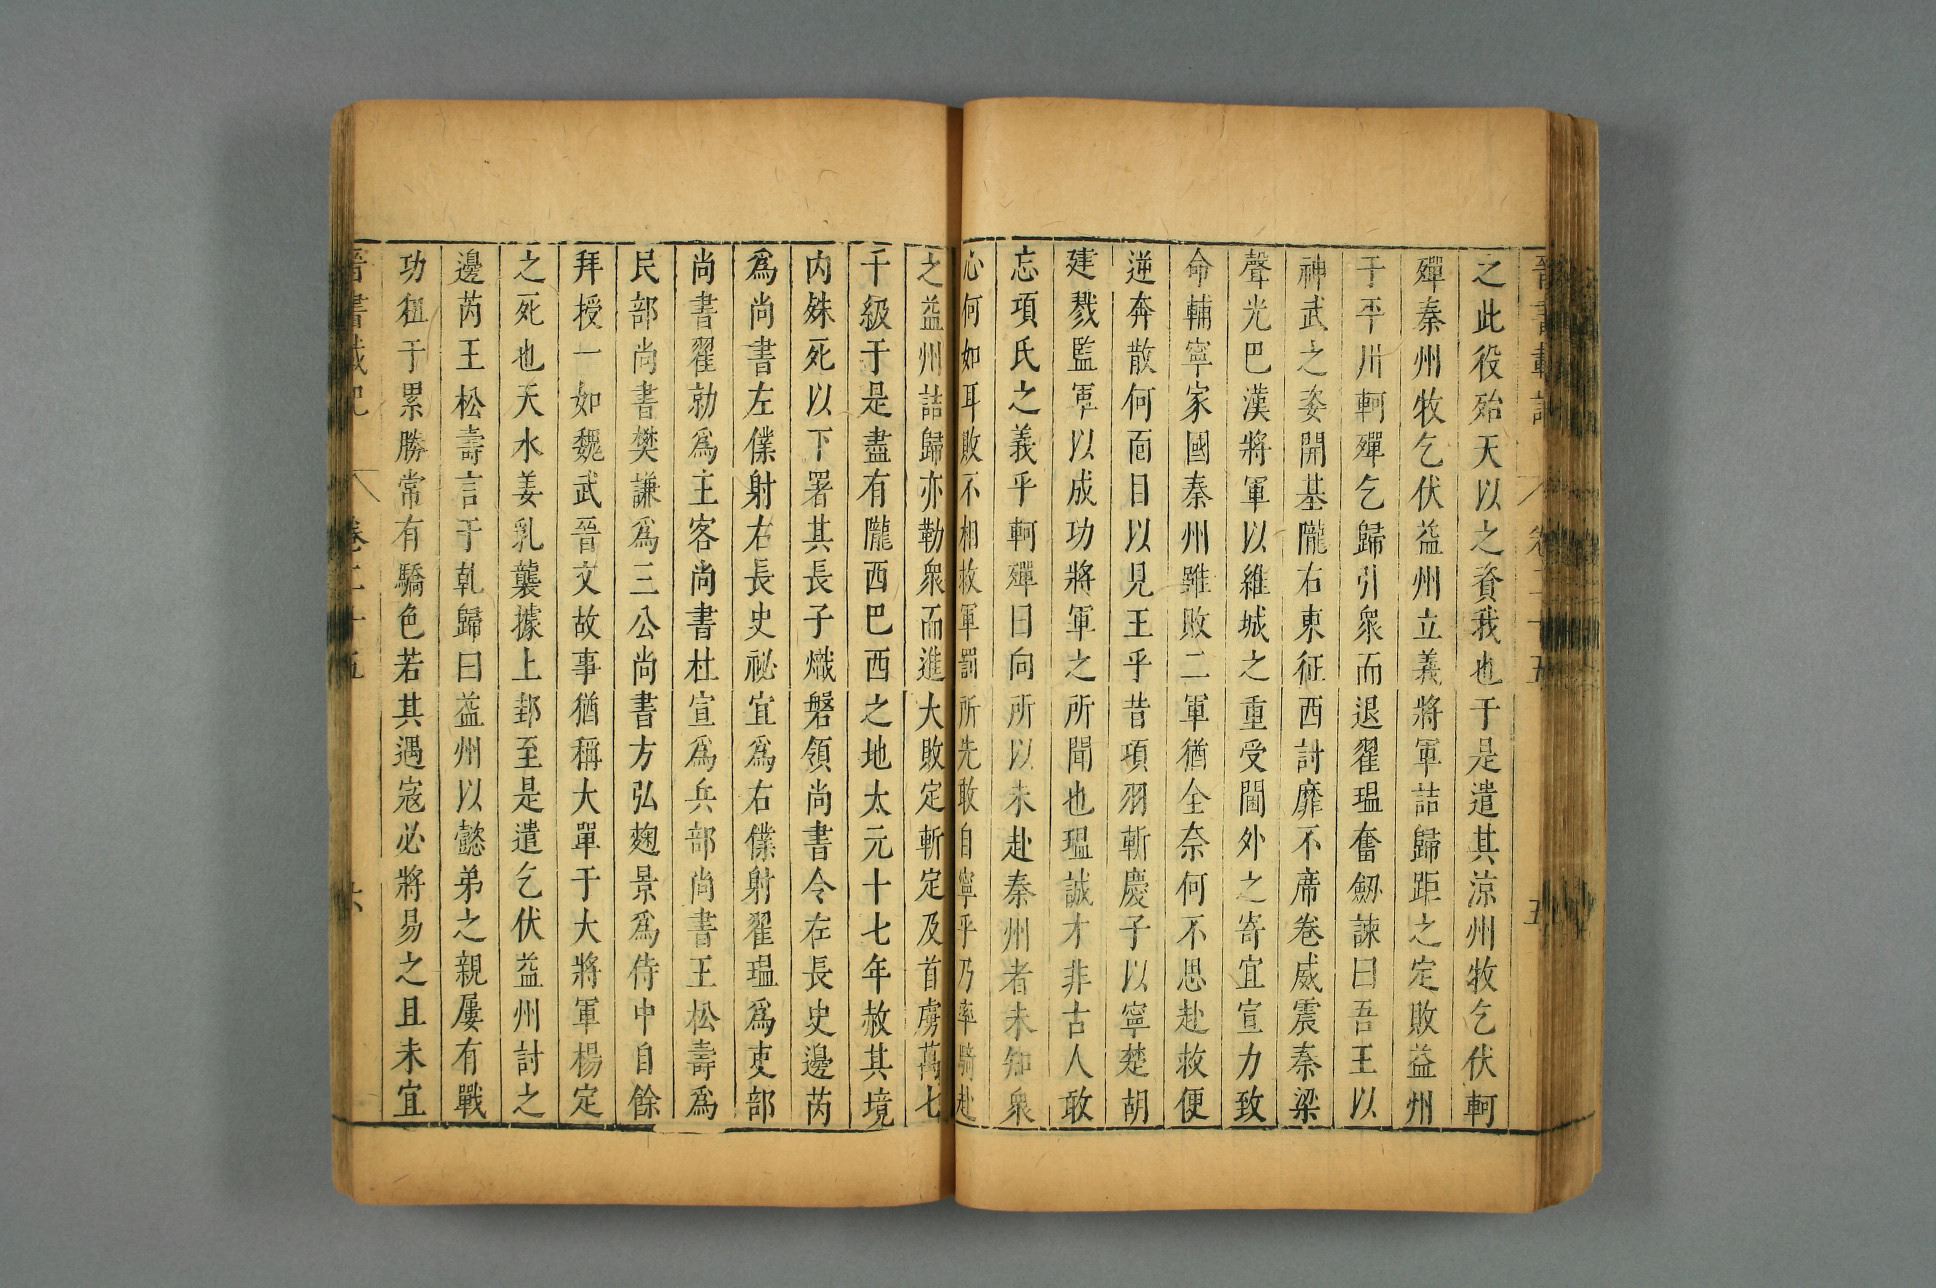 晉書載記 卷二十五 五
之此役殆天以之資我也于是遣其涼州牧乞伏軻
殫秦州牧乞伏益州立義將軍詰歸距之定敗益州
于平川軻殫乞歸引衆而退翟瑥奮劒諫曰吾王以
神武之姿開基隴右東征西討靡不席卷威震秦梁
聲光巴漢將軍以維城之重受閫外之寄宜宣力致
命輔寧家國秦州雖敗二軍猶全奈何不思赴救便
逆奔散何面目以見王乎昔項羽斬慶子以寧楚胡
建戮監軍以成功將軍之所聞也瑥誠才非古人敢
忘項氏之義乎軻殫曰向所以未赴秦州者未知衆
心何如耳敗不相救軍罰所先敢自寧乎乃率騎赴
之益州詰歸亦勒衆而進大敗定斬定及首虜萬七
千級于是盡有隴西巴西之地太元十七年赦其境
内殊死以下署其長子熾磐領尚書令左長史邊芮
爲尚書左僕射右長史祕宜爲右僕射翟瑥爲吏部
尚書翟勍爲主客尚書杜宣爲兵部尚書王松壽爲
民部尚書樊謙爲三公尚書方弘麹景爲侍中自餘
拜授一如魏武晉文故事猶稱大單于大將軍楊定
之死也天水姜乳襲據上邽至是遣乞伏益州討之
邊芮王松壽言于乾歸曰益州以懿弟之親屢有戰
功狃于累勝常有驕色若其遇寇必將易之且未宜
晉書載記 卷二十五 六